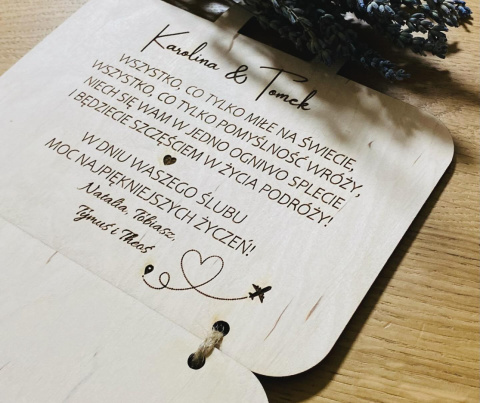 Karolina & Tomek
WSZYSTKO, CO TYLKO MIŁE NA ŚWIECIE,
WSZYSTKO, CO TYLKO POMYŚLNOŚĆ WRÓŻY,
NIECH SIĘ WAM W JEDNO OGNIWO SPLECIE
I BĘDZIECIE SZCZĘŚCIEM W ŻYCIA PODRÓŻY!
W DNIU WASZEGO ŚLUBU
MOC NAJPIĘKNIEJSZYCH ŻYCZEŃ!
Natalia, Tobiasz,
Tymuś i Theoś